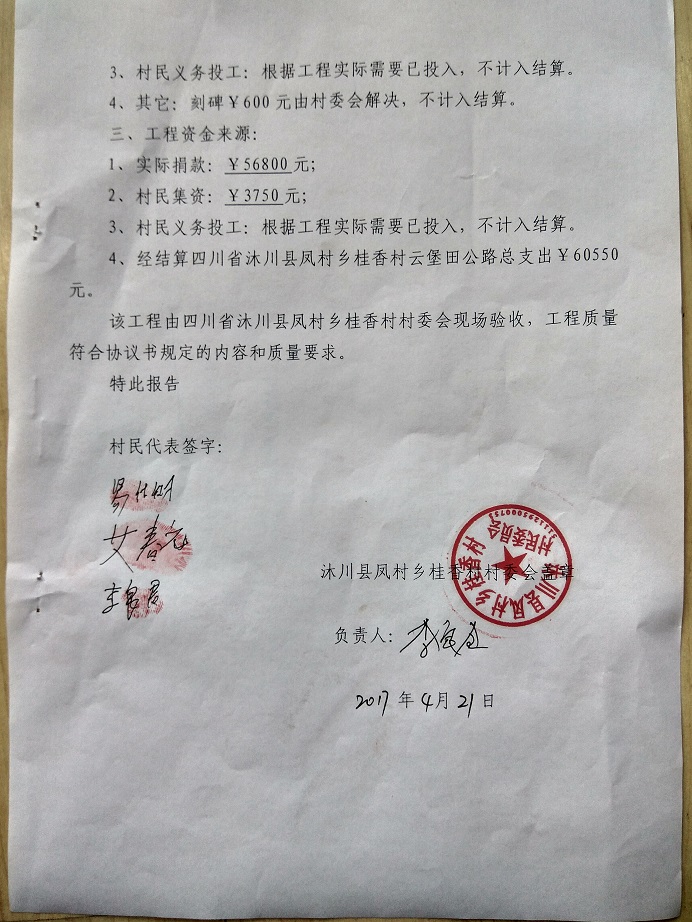 3、村民义务投工：根据工程实际需要已投入，不计入结算。
4、其它：刻碑￥600元由村委会解决，不计入结算。
三、工程资金来源：
1、实际捐款：￥56800元；
2、村民集资：￥3750元；
3、村民义务投工：根据工程实际需要已投入，不计入结算。
4、经结算四川省沐川县凤村乡桂香村云堡田公路总支出￥60550
元。
该工程由四川省沐川县凤村乡桂香村村委会现场验收，工程质量
符合协议书规定的内容和质量要求。
特此报告
村民代表签字：
沐川县凤村乡桂香村
村民委员会
沐川县凤村乡桂香村村委会盖章
负责人：
2017年4月21日